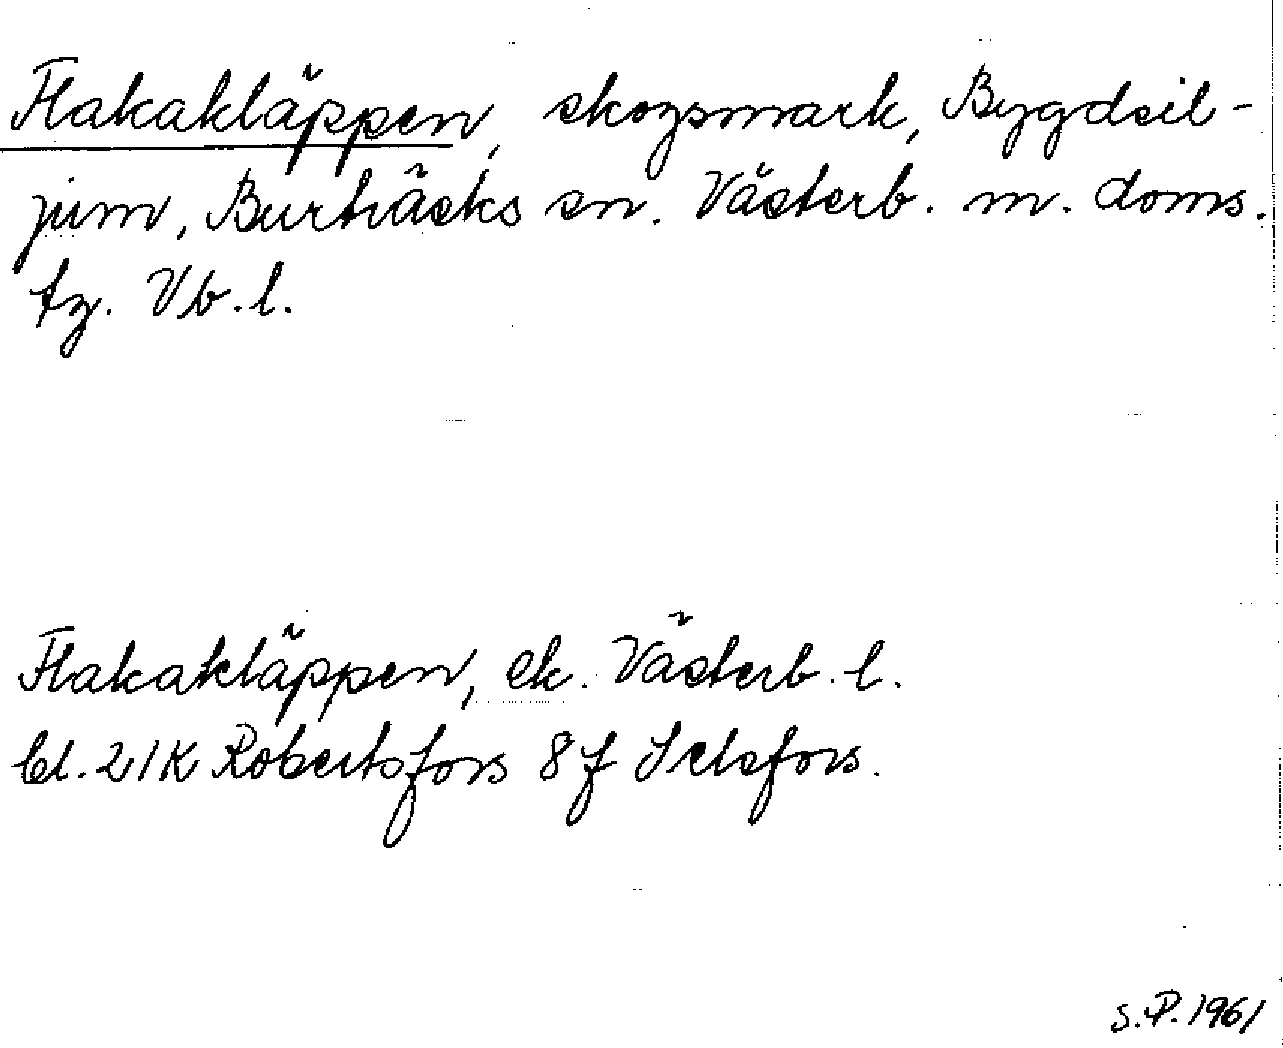 Flakakläppen, skogsmark, Bygdsil-
jum, Burträsks sn. Västerb. m. doms.
tg. Vb.l.
Flakakläppen, ek. Västerb. l.
bl. 21K Robertsfors 8f Sclsfors.
S.P. 1961